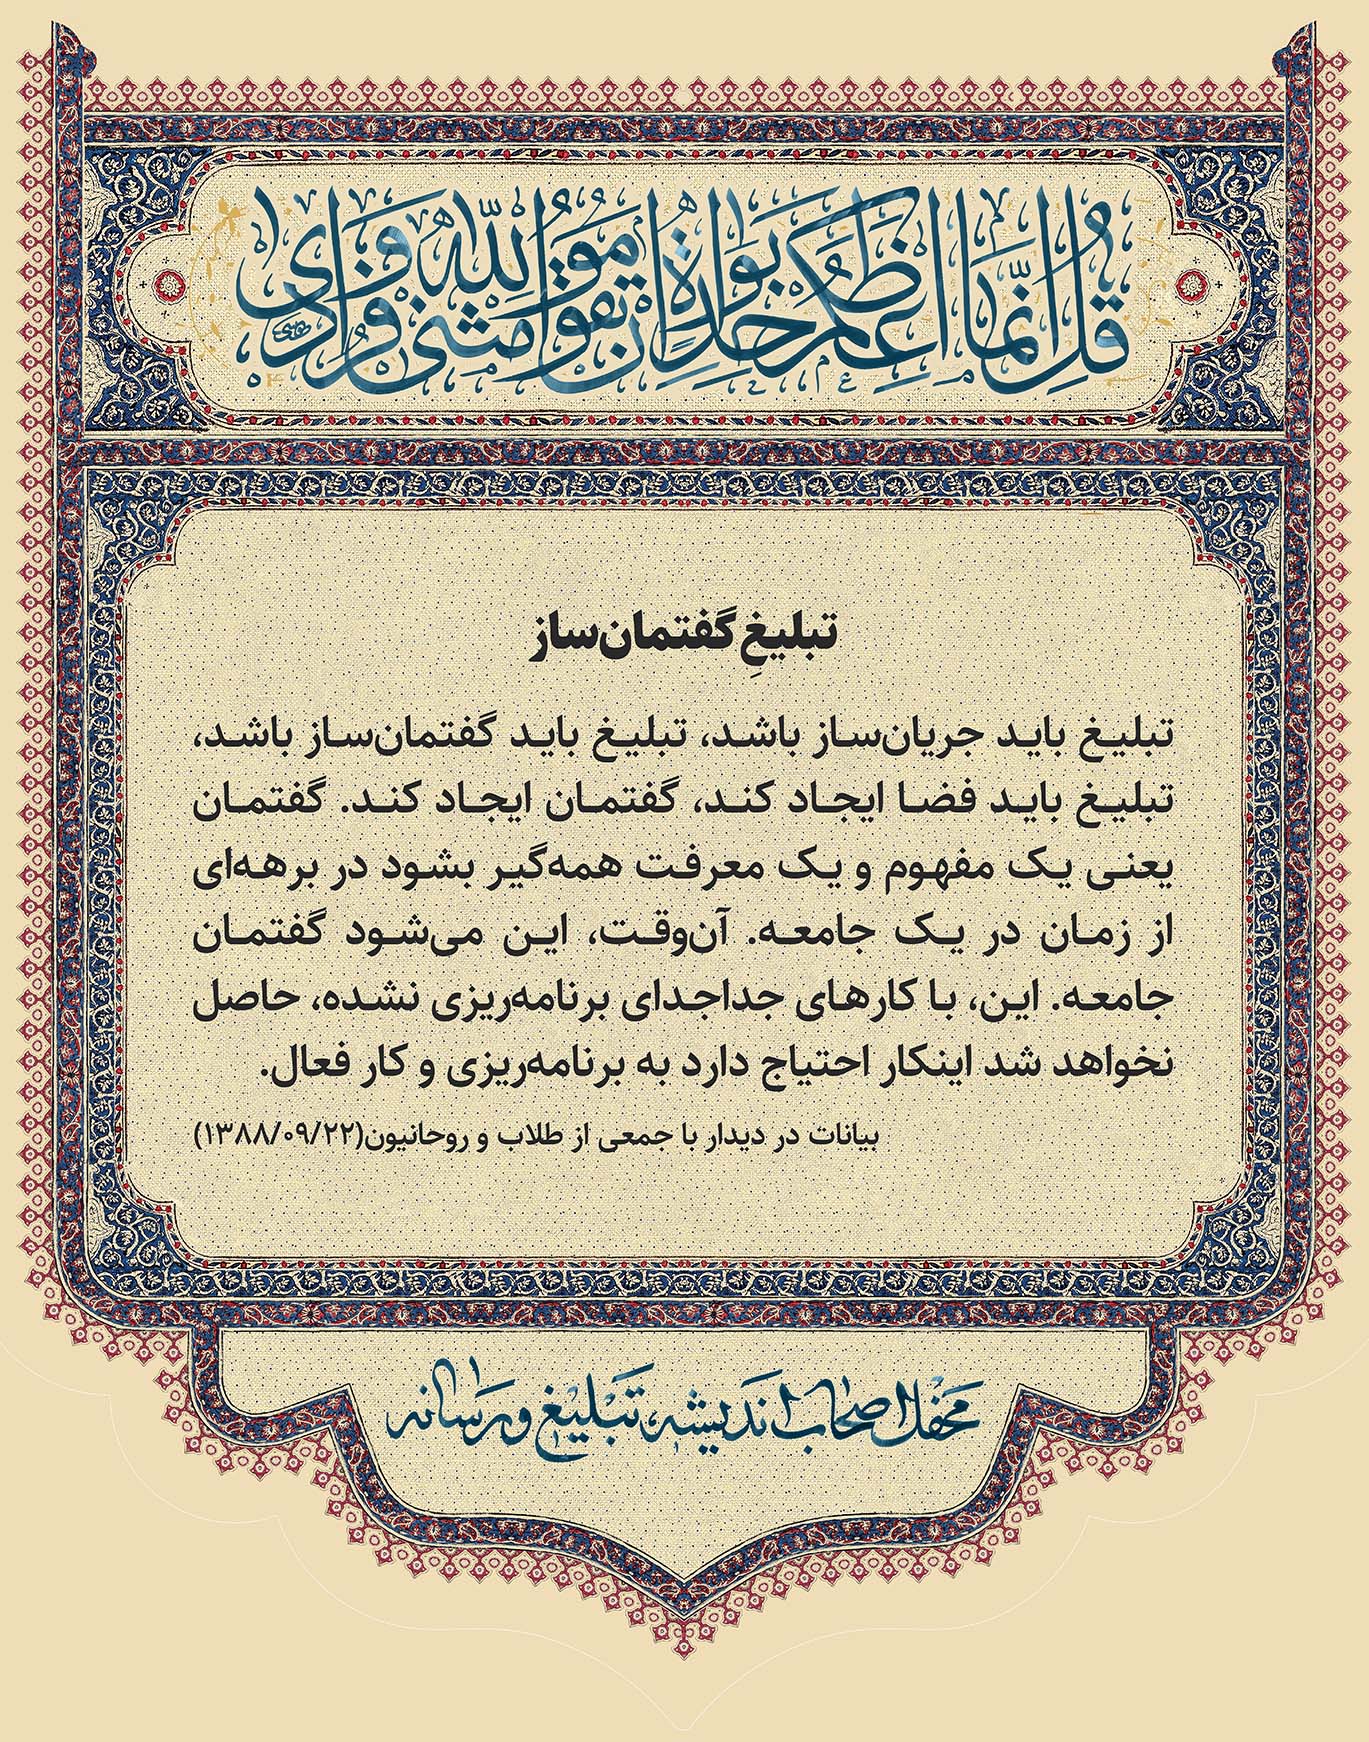 قُل اِنَّمَا اَعِظُکُم بِواحِدَةٍ اَن تَقوموا لِلّٰهِ مَثنیٰ وَ فُرادیٰ
تبلیغِ گفتمان‌ساز
تبلیغ باید جریان‌ساز باشد، تبلیغ باید گفتمان‌ساز باشد،
تبلیغ باید فضا ایجاد کند، گفتمان ایجاد کند. گفتمان
یعنی یک مفهوم و یک معرفت همه‌گیر بشود در برهه‌ای
از زمان در یک جامعه. آن‌وقت، این می‌شود گفتمان
جامعه. این، با کارهای جداجدای برنامه‌ریزی نشده، حاصل
نخواهد شد اینکار احتیاج دارد به برنامه‌ریزی و کار فعال.
بیانات در دیدار با جمعی از طلاب و روحانیون(۱۳۸۸/۰۹/۲۲)
محفل اصحاب اندیشه، تبلیغ و رسانه